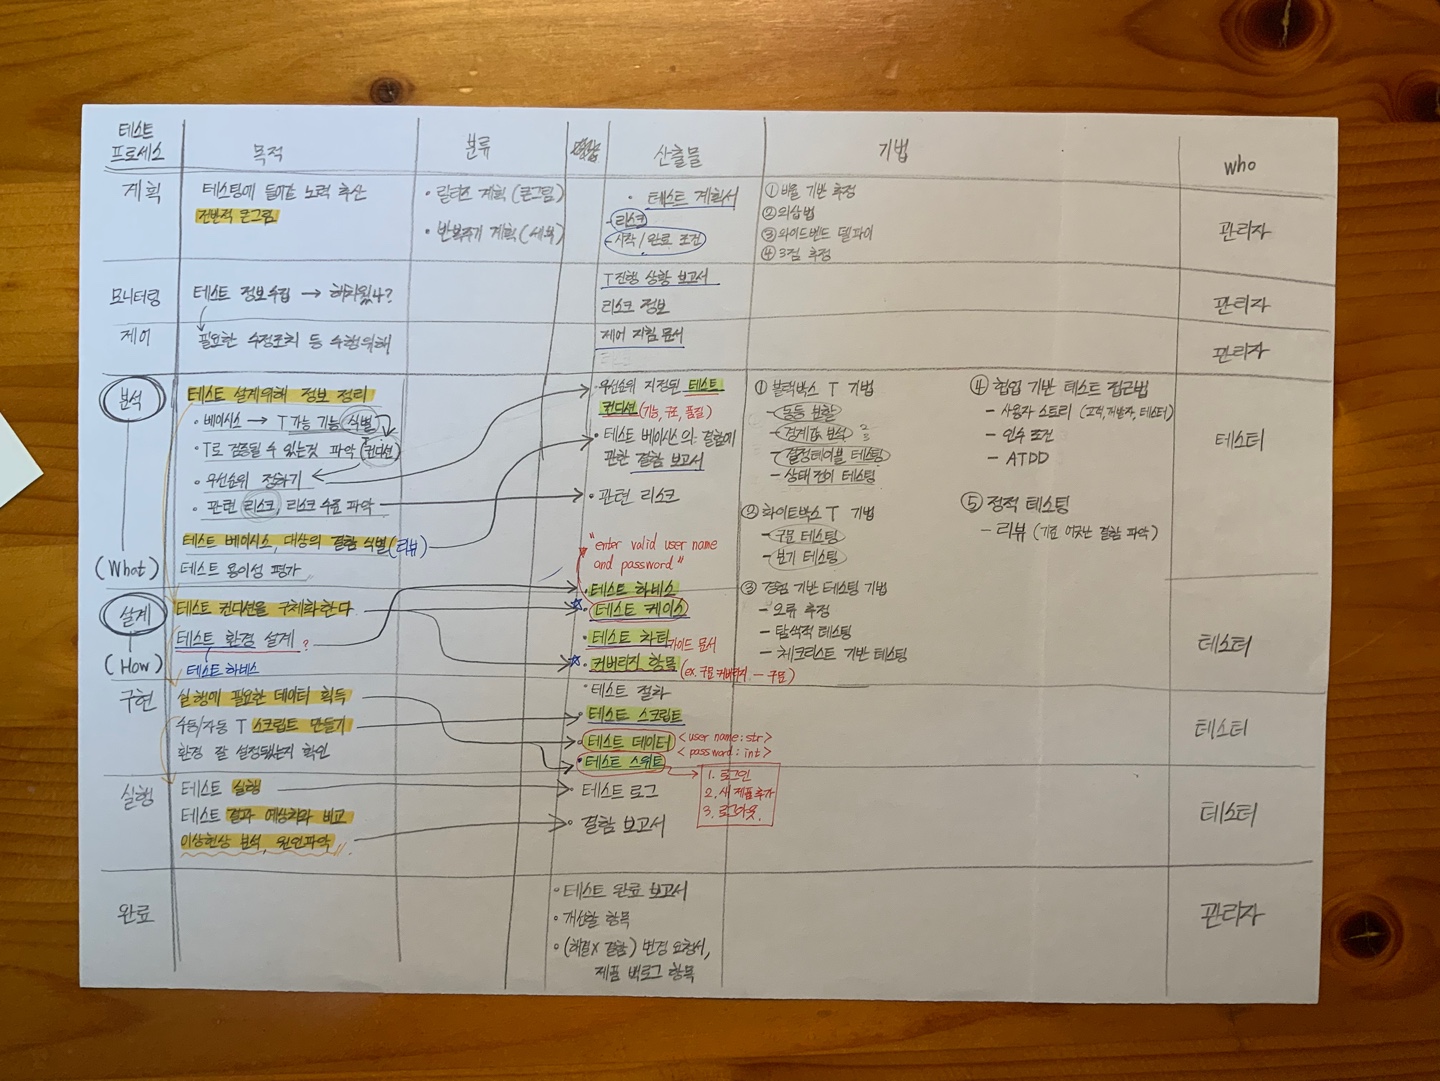 테스트
프로세스
목적
분류
산출물
기법
who
계획
테스팅에 들어갈 노력 추산
전반적 큰그림
· 릴리즈 계획 (큰그림)
· 반복주기 계획 (세부)
· 테스트 계획서
- 리스크
- 시작 / 완료 조건
① 비율 기반 추정
② 외삽법
③ 와이드밴드 델파이
④ 3점 추정
관리자
모니터링
테스트 정보수집 →
T진행 상황 보고서
리스크 정보
관리자
제어
필요한 수정조치 등 수행위해
제어 지침 문서
관리자
분석
(What)
테스트 설계위해 정보 정리
· 베이시스 → T 가능 기능 식별
· T로 검증될 수 있는것 파악 (컨디션)
· 우선순위 정하기
· 관련 리스크, 리스크 수준 파악
테스트 베이시스, 대상의 결함 식별 (리뷰)
테스트 용이성 평가
· 우선순위 지정된 테스트
컨디션 (기능, 구조, 품질)
· 테스트 베이시스의 결함에
관한 결함 보고서
· 관련 리스크
① 블랙박스 T 기법
- 동등 분할
- 경계값 분석 2 3
- 결정테이블 테스팅
- 상태 전이 테스팅
② 화이트박스 T 기법
- 구문 테스팅
- 분기 테스팅
③ 경험 기반 테스팅 기법
- 오류 추정
- 탐색적 테스팅
- 체크리스트 기반 테스팅
④ 협업 기반 테스트 접근법
- 사용자 스토리 (고객, 개발자, 테스터)
- 인수 조건
- ATDD
⑤ 정적 테스팅
- 리뷰 (기준 어긋난 결함 파악)
테스터
설계
(How)
테스트 컨디션을 구체화한다
테스트 환경 설계 ?
테스트 하네스
"enter valid user name
and password"
· 테스트 하네스
☆ 테스트 케이스
· 테스트 차터 가이드 문서
☆ 커버리지 항목 (ex. 구문 커버리지 - 구문)
테스터
구현
실행에 필요한 데이터 획득
수동/자동 T 스크립트 만들기
환경 잘 설정됐는지 확인
· 테스트 절차
· 테스트 스크립트
· 테스트 데이터 < user name : str >
< password : int >
· 테스트 스위트
1. 로그인
2. 새 제품 추가
3. 로그아웃.
테스터
실행
테스트 실행
테스트 결과 예상치와 비교
이상현상 분석, 원인파악
· 테스트 로그
· 결함 보고서
테스터
완료
· 테스트 완료 보고서
· 개선할 항목
· (해결X 결함) 변경 요청서,
제품 백로그 항목
관리자